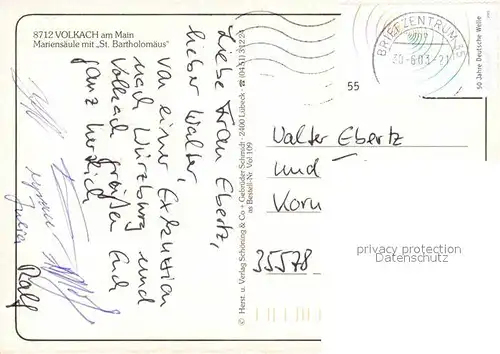 8712 VOLKACH am Main
Mariensäule mit „St. Bartholomäus"
Liebe Frau Ebertz,
lieber Walter,
von einer Exkursion
nach Würzburg und
Volkach grüßen Euch
ganz herzlich
Julia
Ralf
© Herst. u. Verlag Schöning & Co + Gebrüder Schmidt · 2400 Lübeck
as Bestell-Nr. Vol 109
BRIEFZENTRUM 35
30.-6.03.-21
50 Jahre Deutsche Welle
55
Walter Ebertz
und
Korn
35578
privacy protection
Datenschutz